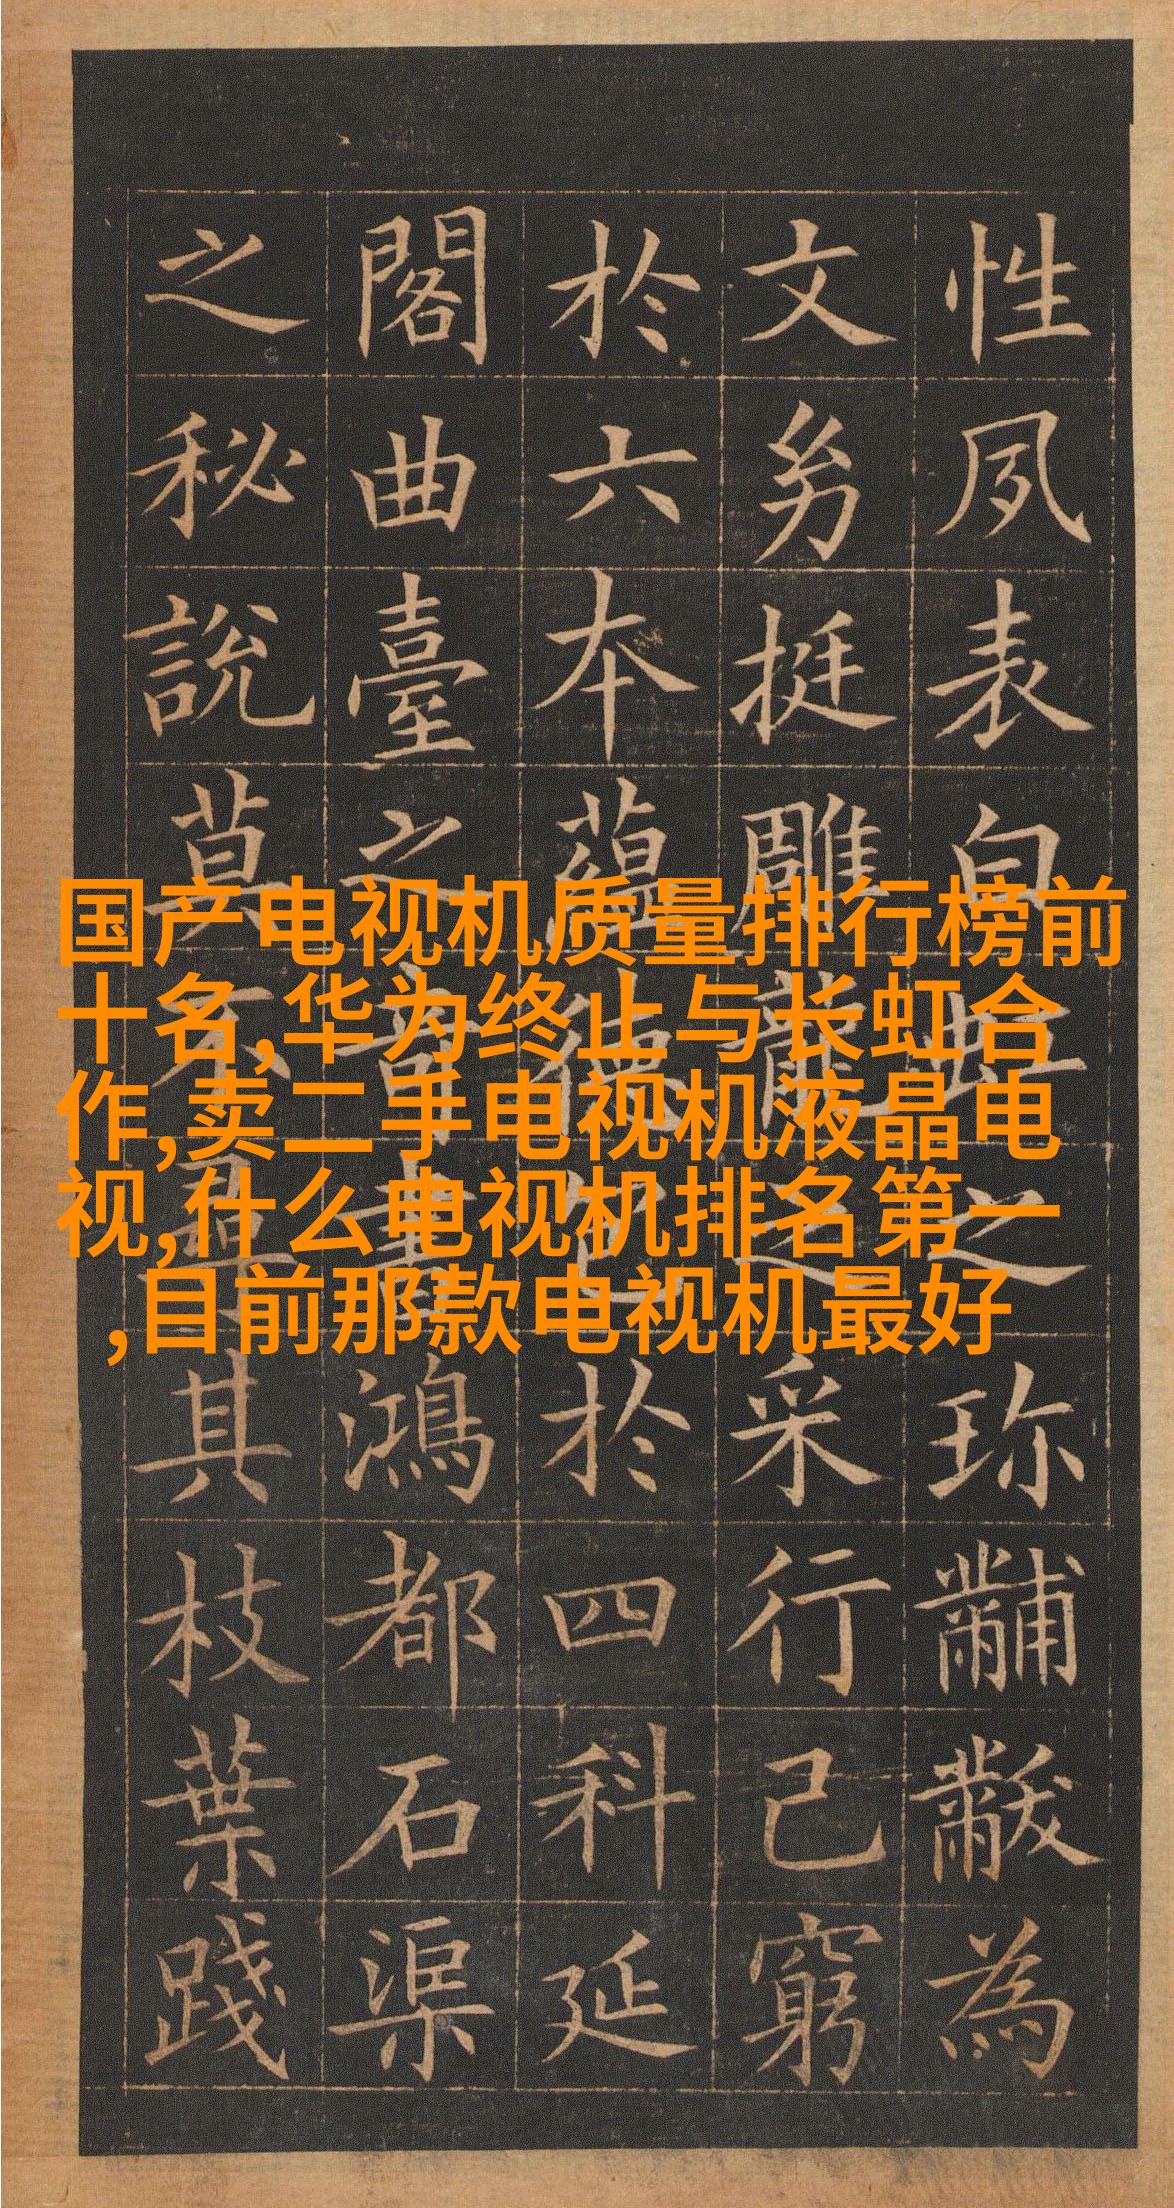 性夙表白虹之珍黼黻為
文㓜挺雕龍之采行己窮
於六本蘊德包於四科延
閣曲臺之奧書鴻都石渠
之秘說莫不尋其枝葉踐
国产电视机质量排行榜前
十名,华为终止与长虹合
作,卖二手电视机液晶电
视,什么电视机排名第一
,目前那款电视机最好